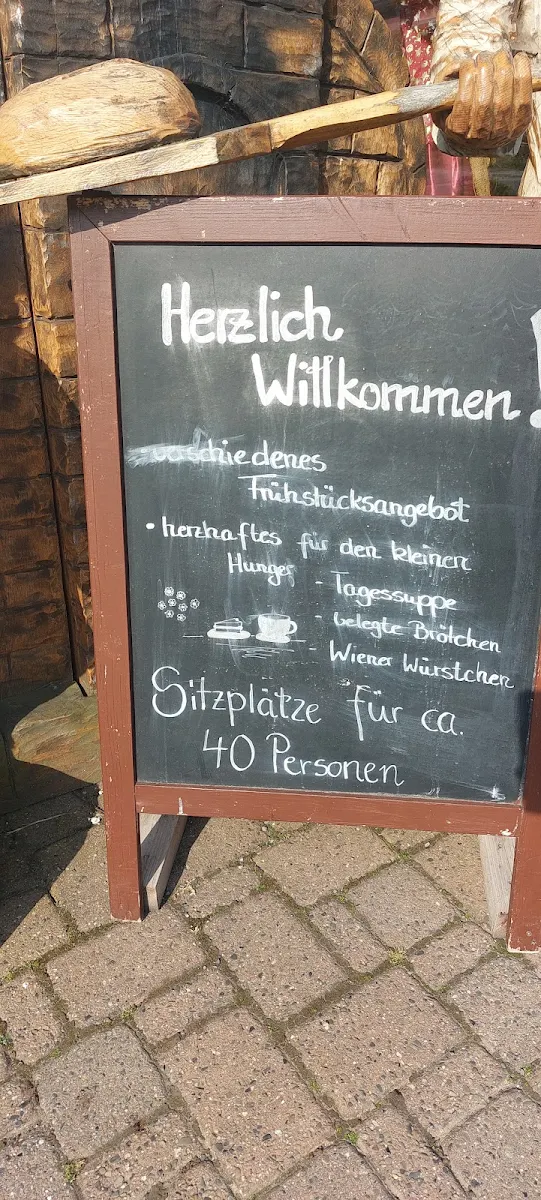 Herzlich
Willkommen!
verschiedenes
Frühstücksangebot
• herzhaftes für den kleinen
Hunger - Tagessuppe
- belegte Brötchen
- Wiener Würstchen
Sitzplätze für ca.
40 Personen